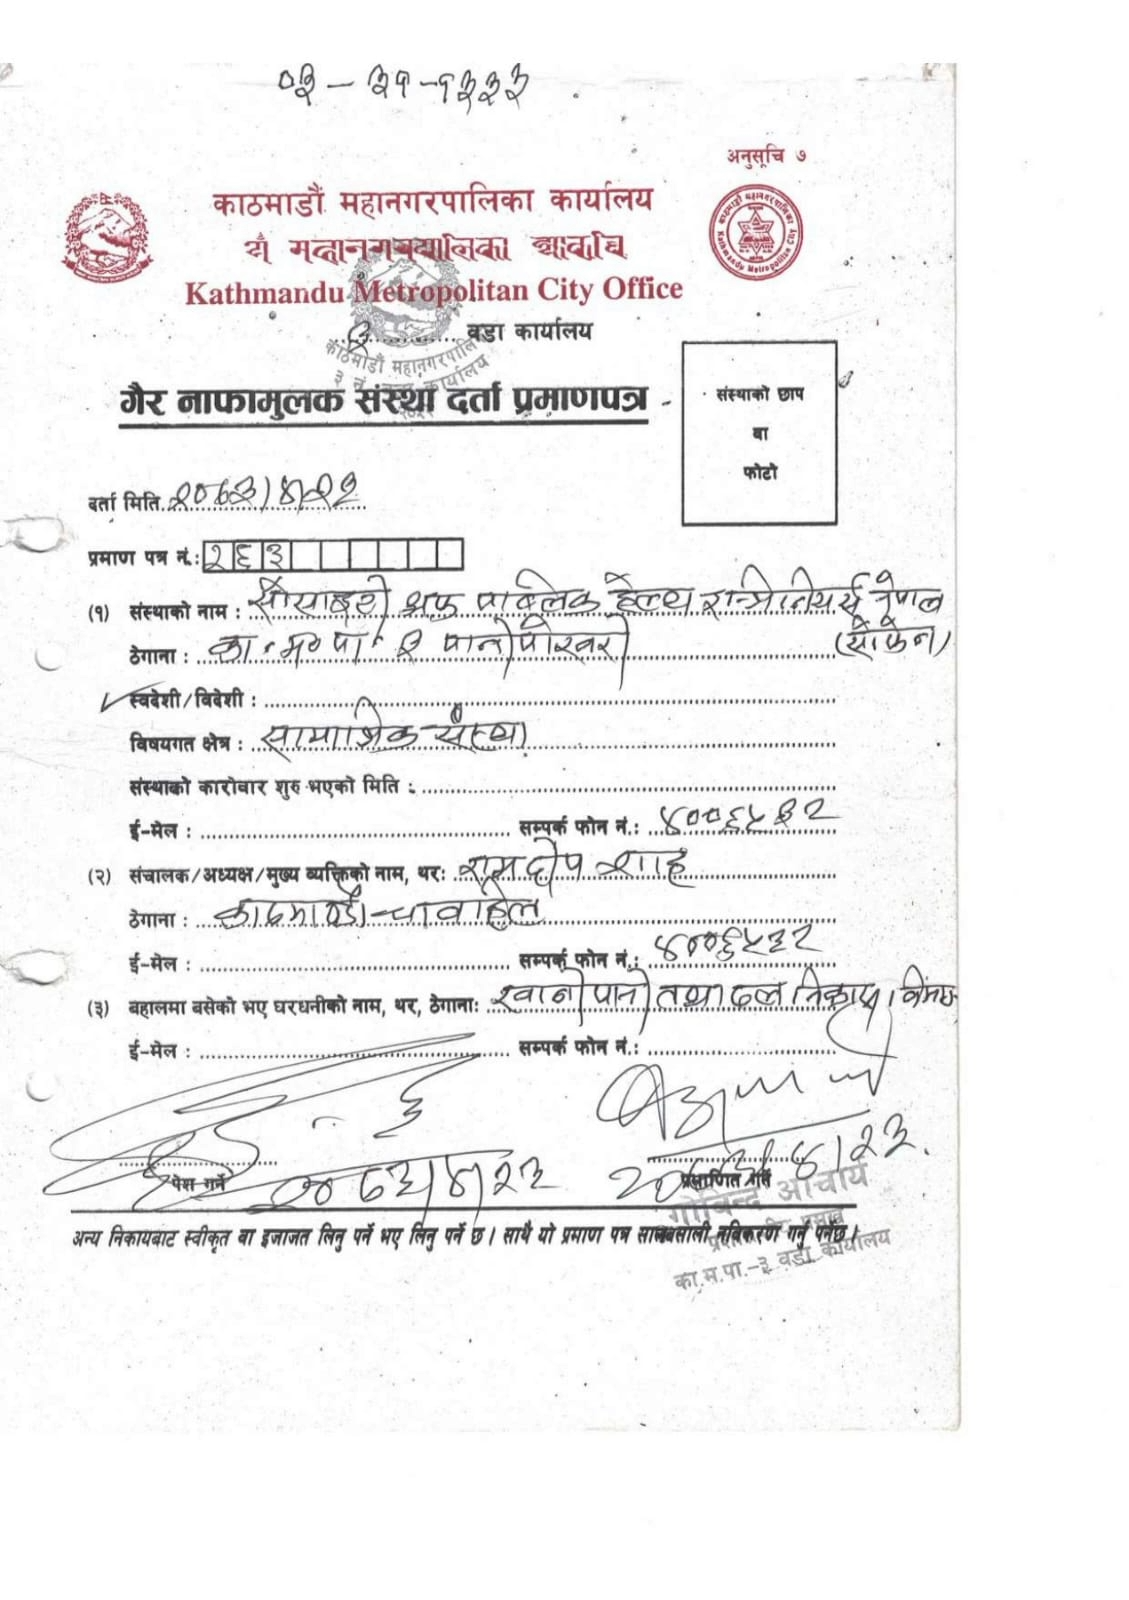 ०३ - ३१ - १३३३
अनुसूचि ७
काठमाडौं महानगरपालिका कार्यालय
Kathmandu Metropolitan City Office
३ वडा कार्यालय
काठमाडौं महानगरपालिका
गैर नाफामुलक संस्था दर्ता प्रमाणपत्र
संस्थाको छाप
वा
फोटो
दर्ता मिति
प्रमाण पत्र नं.: २६३
(१) संस्थाको नाम : सोसाइटी अफ पब्लिक हेल्थ इन्जिनियर्स नेपाल
(सोफेन)
ठेगाना : का.म.पा. ३ पानीपोखरी
स्वदेशी/विदेशी :
विषयगत क्षेत्र : सामाजिक संस्था
संस्थाको कारोवार शुरु भएको मिति :
ई-मेल : सम्पर्क फोन नं.: ४००६५३२
(२) संचालक/अध्यक्ष/मुख्य व्यक्तिको नाम, थर: रामदीप शाह
ठेगाना : काठमाडौं चावहिल
ई-मेल : सम्पर्क फोन नं.: ४००६५३२
(३) बहालमा बसेको भए घरधनीको नाम, थर, ठेगाना: खानेपानी तथा ढल निकास
ई-मेल : सम्पर्क फोन नं.:
पेश गर्ने प्रमाणित गर्ने
गोविन्द आचार्य
अन्य निकायबाट स्वीकृत वा इजाजत लिनु पर्ने भए लिनु पर्ने छ । साथै यो प्रमाण पत्र सालबसाली नविकरण गर्नु पर्नेछ।
का.म.पा.-३ वडा कार्यालय